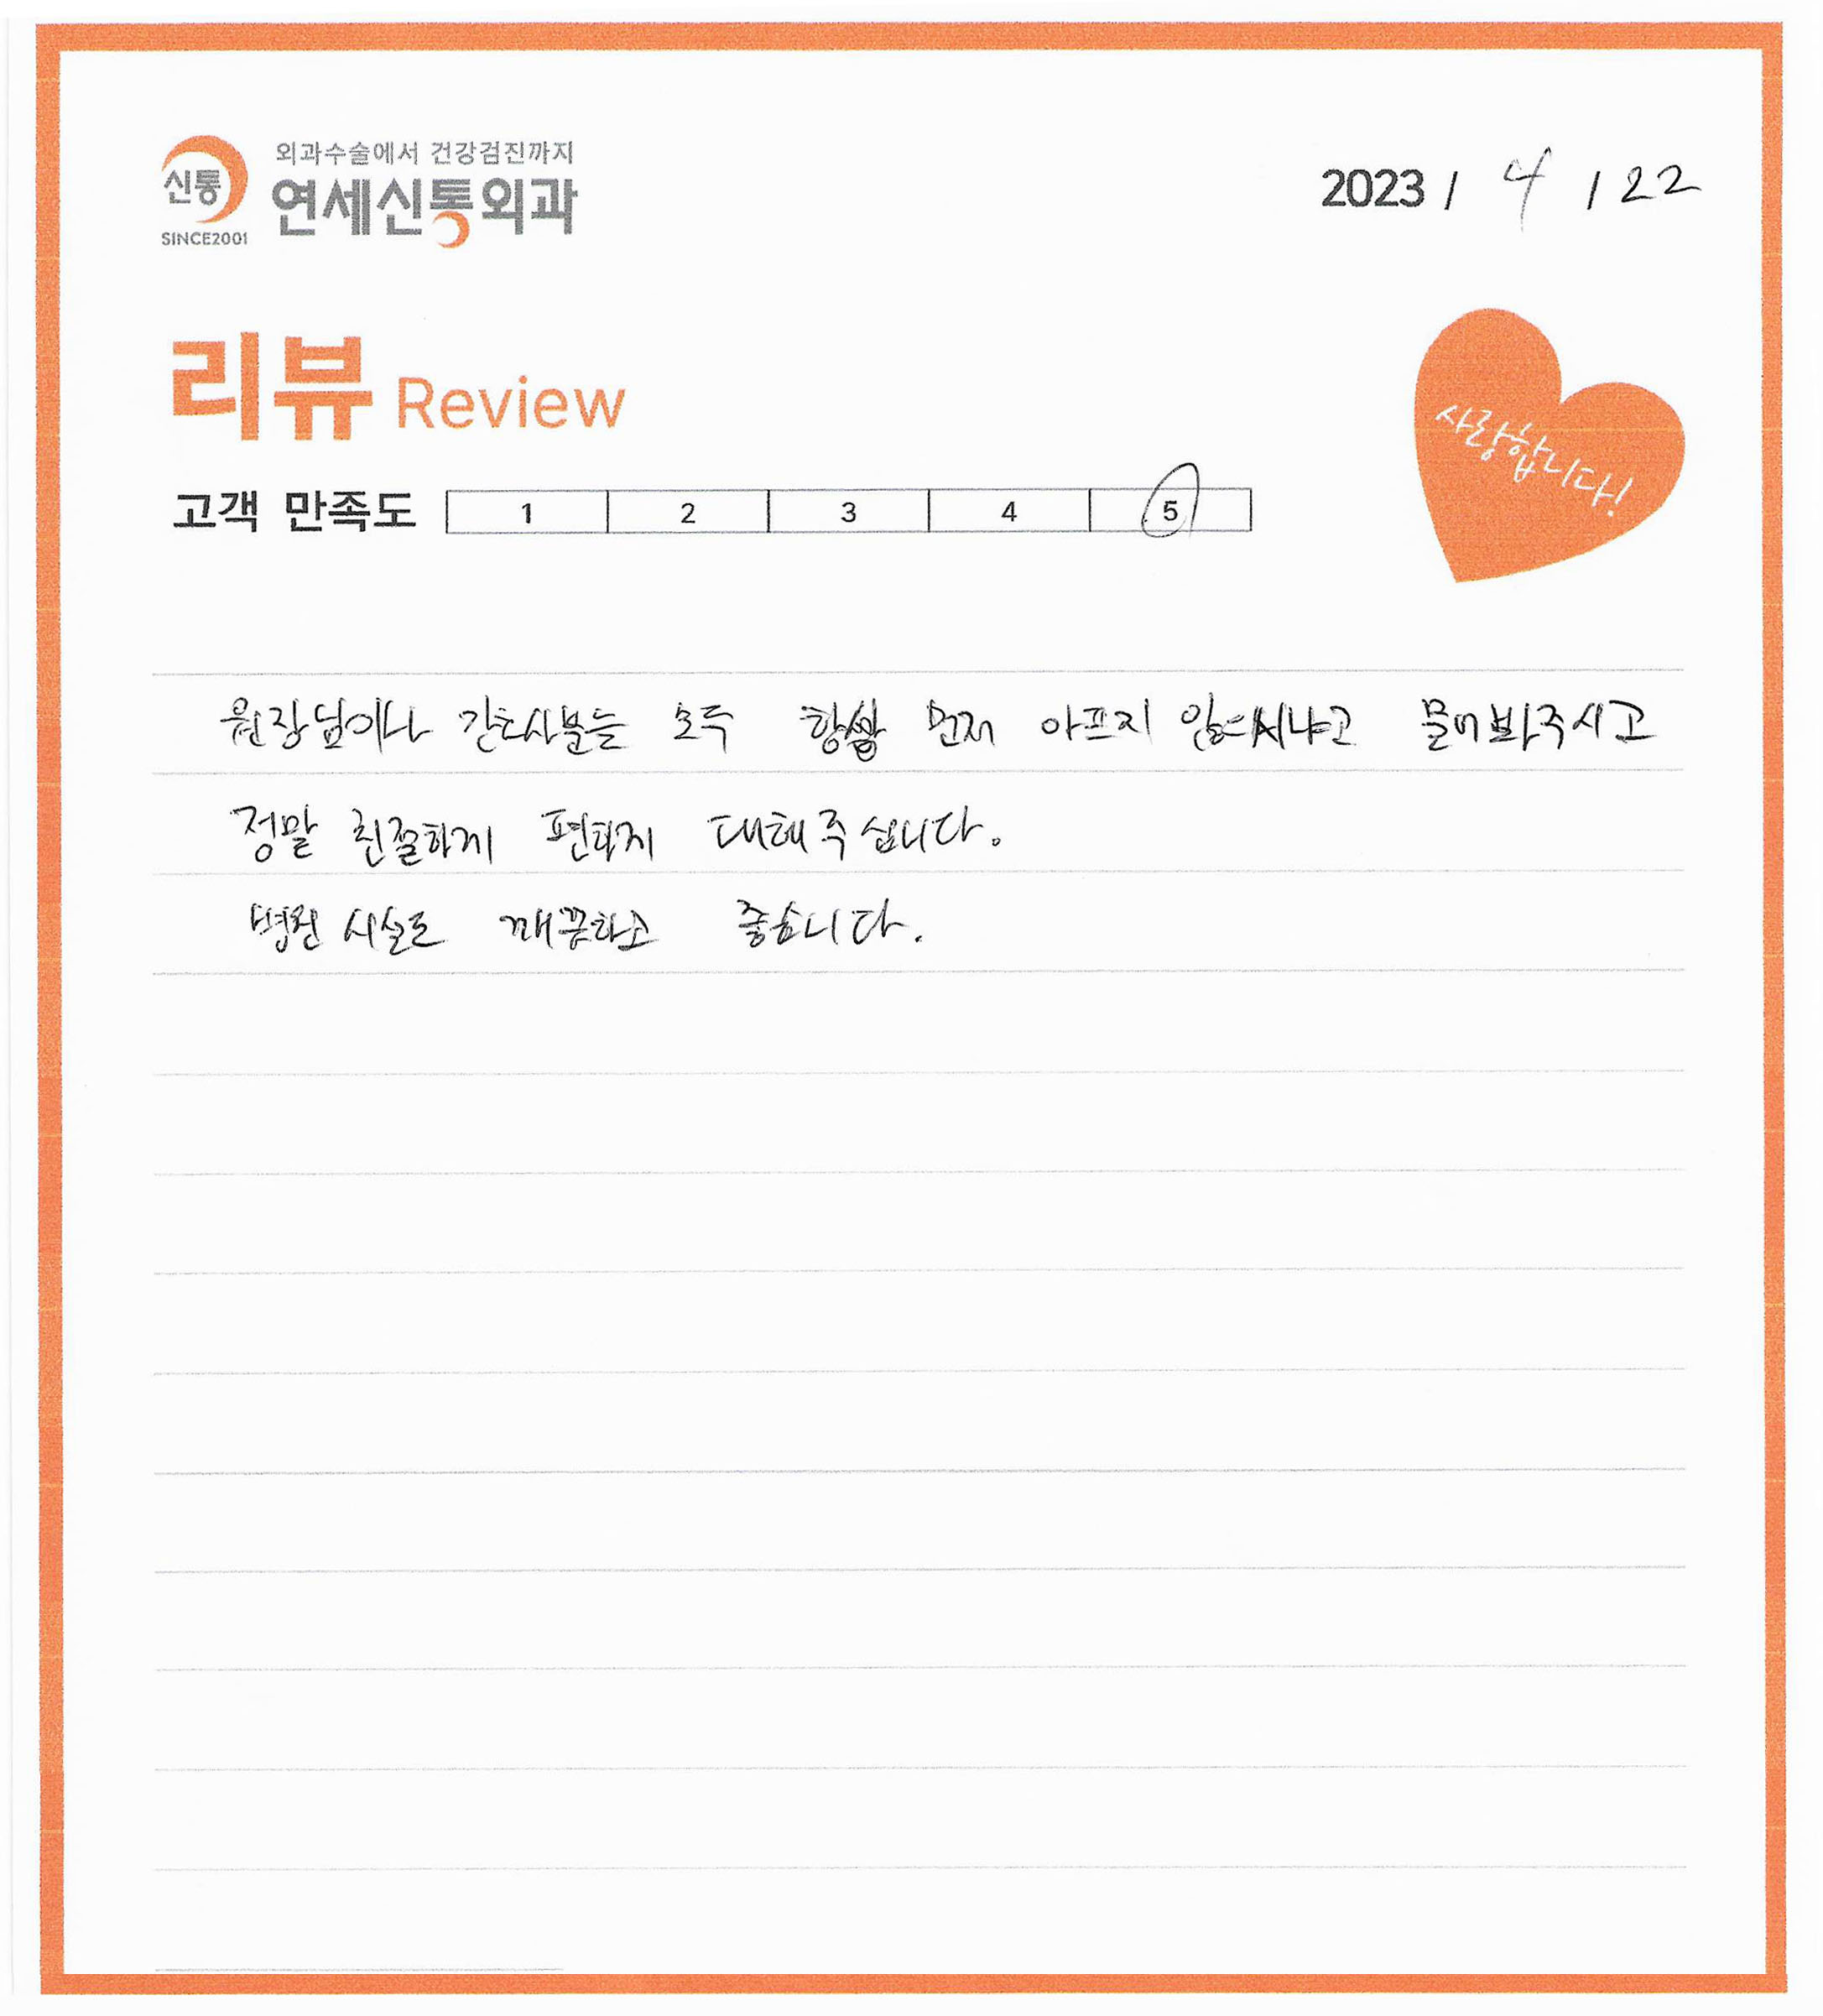 외과수술에서 건강검진까지
신통
연세신통외과
SINCE2001
2023 / 4 / 22
리뷰 Review
사랑합니다!
고객 만족도 1 2 3 4 5
원장님이나 간호사분들 모두 항상 먼저 아프지 않으시냐고 물어봐주시고
정말 친절하게 편하게 대해주십니다.
병원 시설도 깨끗하고 좋습니다.